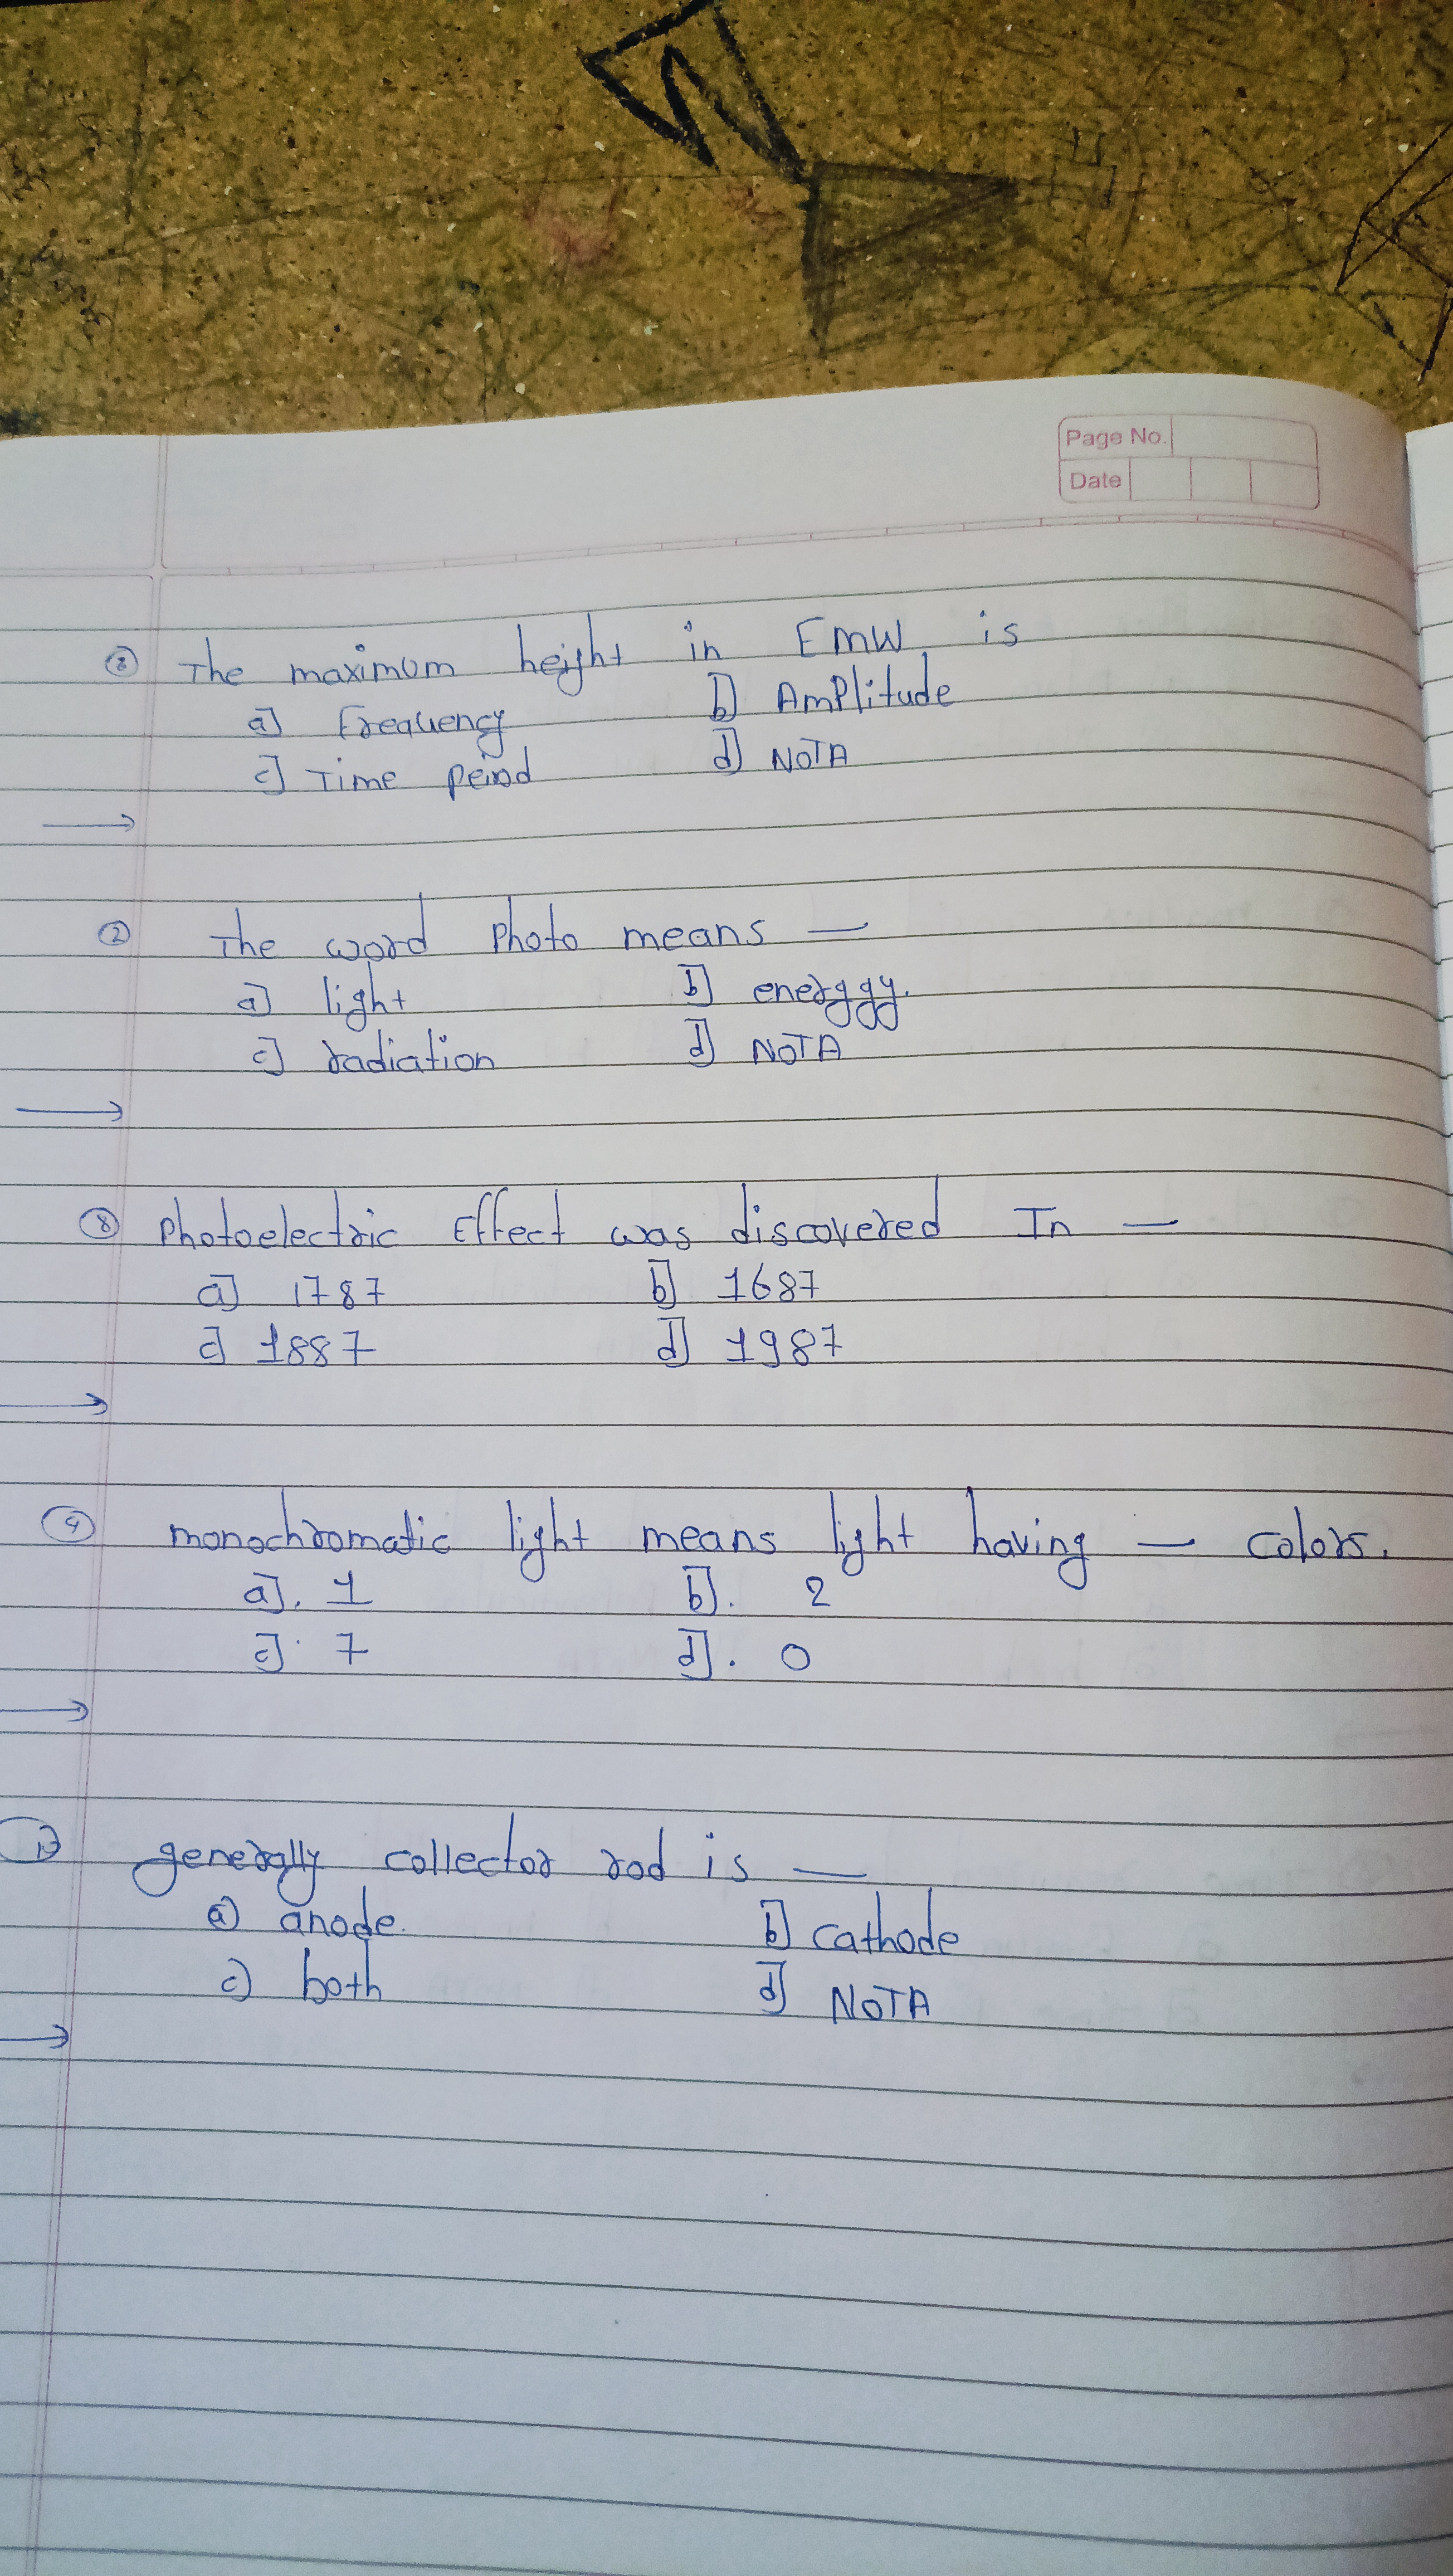 Page No.
Date
② The maximum height in EMW is
a] Frequency b] Amplitude
c] Time peiod d] NOTA
→
② The word photo means —
a] light b] energgy.
c] radiation d] NOTA
→
⑧ photoelectric Effect was discovered In —
a] 1787 b] 1687
c] 1887 d] 1987
→
④ monochromatic light means light having — colors.
a]. 1 b]. 2
c]. 7 d]. 0
→
generally collector rod is —
a) anode. b] cathode
c) both d] NOTA
→